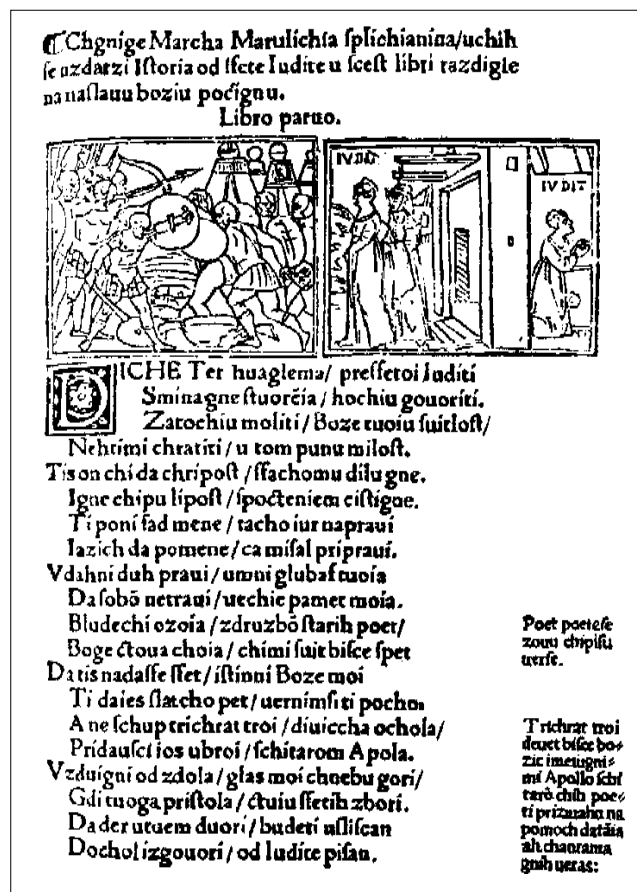 ¶Chgnige Marcha Marulichia ſplichianina/uchih
ſe uzdarzi Iſtoria od ſſete Iudite u ſceſt libri razdigle
na naſlauu boziu počignu.
Libro paruo.
IVDIT
IVDIT
DICHE Ter huaglema/ preſſetoi Iuditi
Smina gne ſtuorēia / hochiu gouoriti.
Zatochiu moliti / Boze tuoiu ſuitloſt/
Nehtimi chratiti / u tom punu miloſt.
Tis on chi da chripoſt / ſſachomu dilu gne.
Igne chipu lipoſt / ſpočteniem ciſtigne.
Ti poni ſad mene / tacho iur naprauí
Iazich da pomene / ca miſal priprauí.
Vdahni duh praui / umni glubaſ tuoia
Da ſobō netraui / uechie pamet moia.
Bludechi ozoia / zdruzbō ſtarih poet/
Boge čtoua choia / chimi ſuit biſce ſpet
Da tis nadaſſe ſſet / iſtinni Boze moi
Ti daies ſlatcho pet / uernimſi ti pochoi
A ne ſchup trichrat troi / diuiccha ochola/
Pridauſci ios ubroi / ſchitarom Apola.
Vzduigni od zdola / glas moi chnebu gori/
Gdi tuoga priſtola / čtuiu ſſetih zbori.
Da der utuem duori / budeti usliſcan
Dochol izgouori / od Iudite piſan.
Poet poeteſe
zouu chipiſu
uerſe.
Trichrat troi
deuet biſce bo-
zic imeuigni-
mi Apollo ſchi
tarō chih poe-
ti prizuahu na
pomoch datāia
ah
gnih ueras: